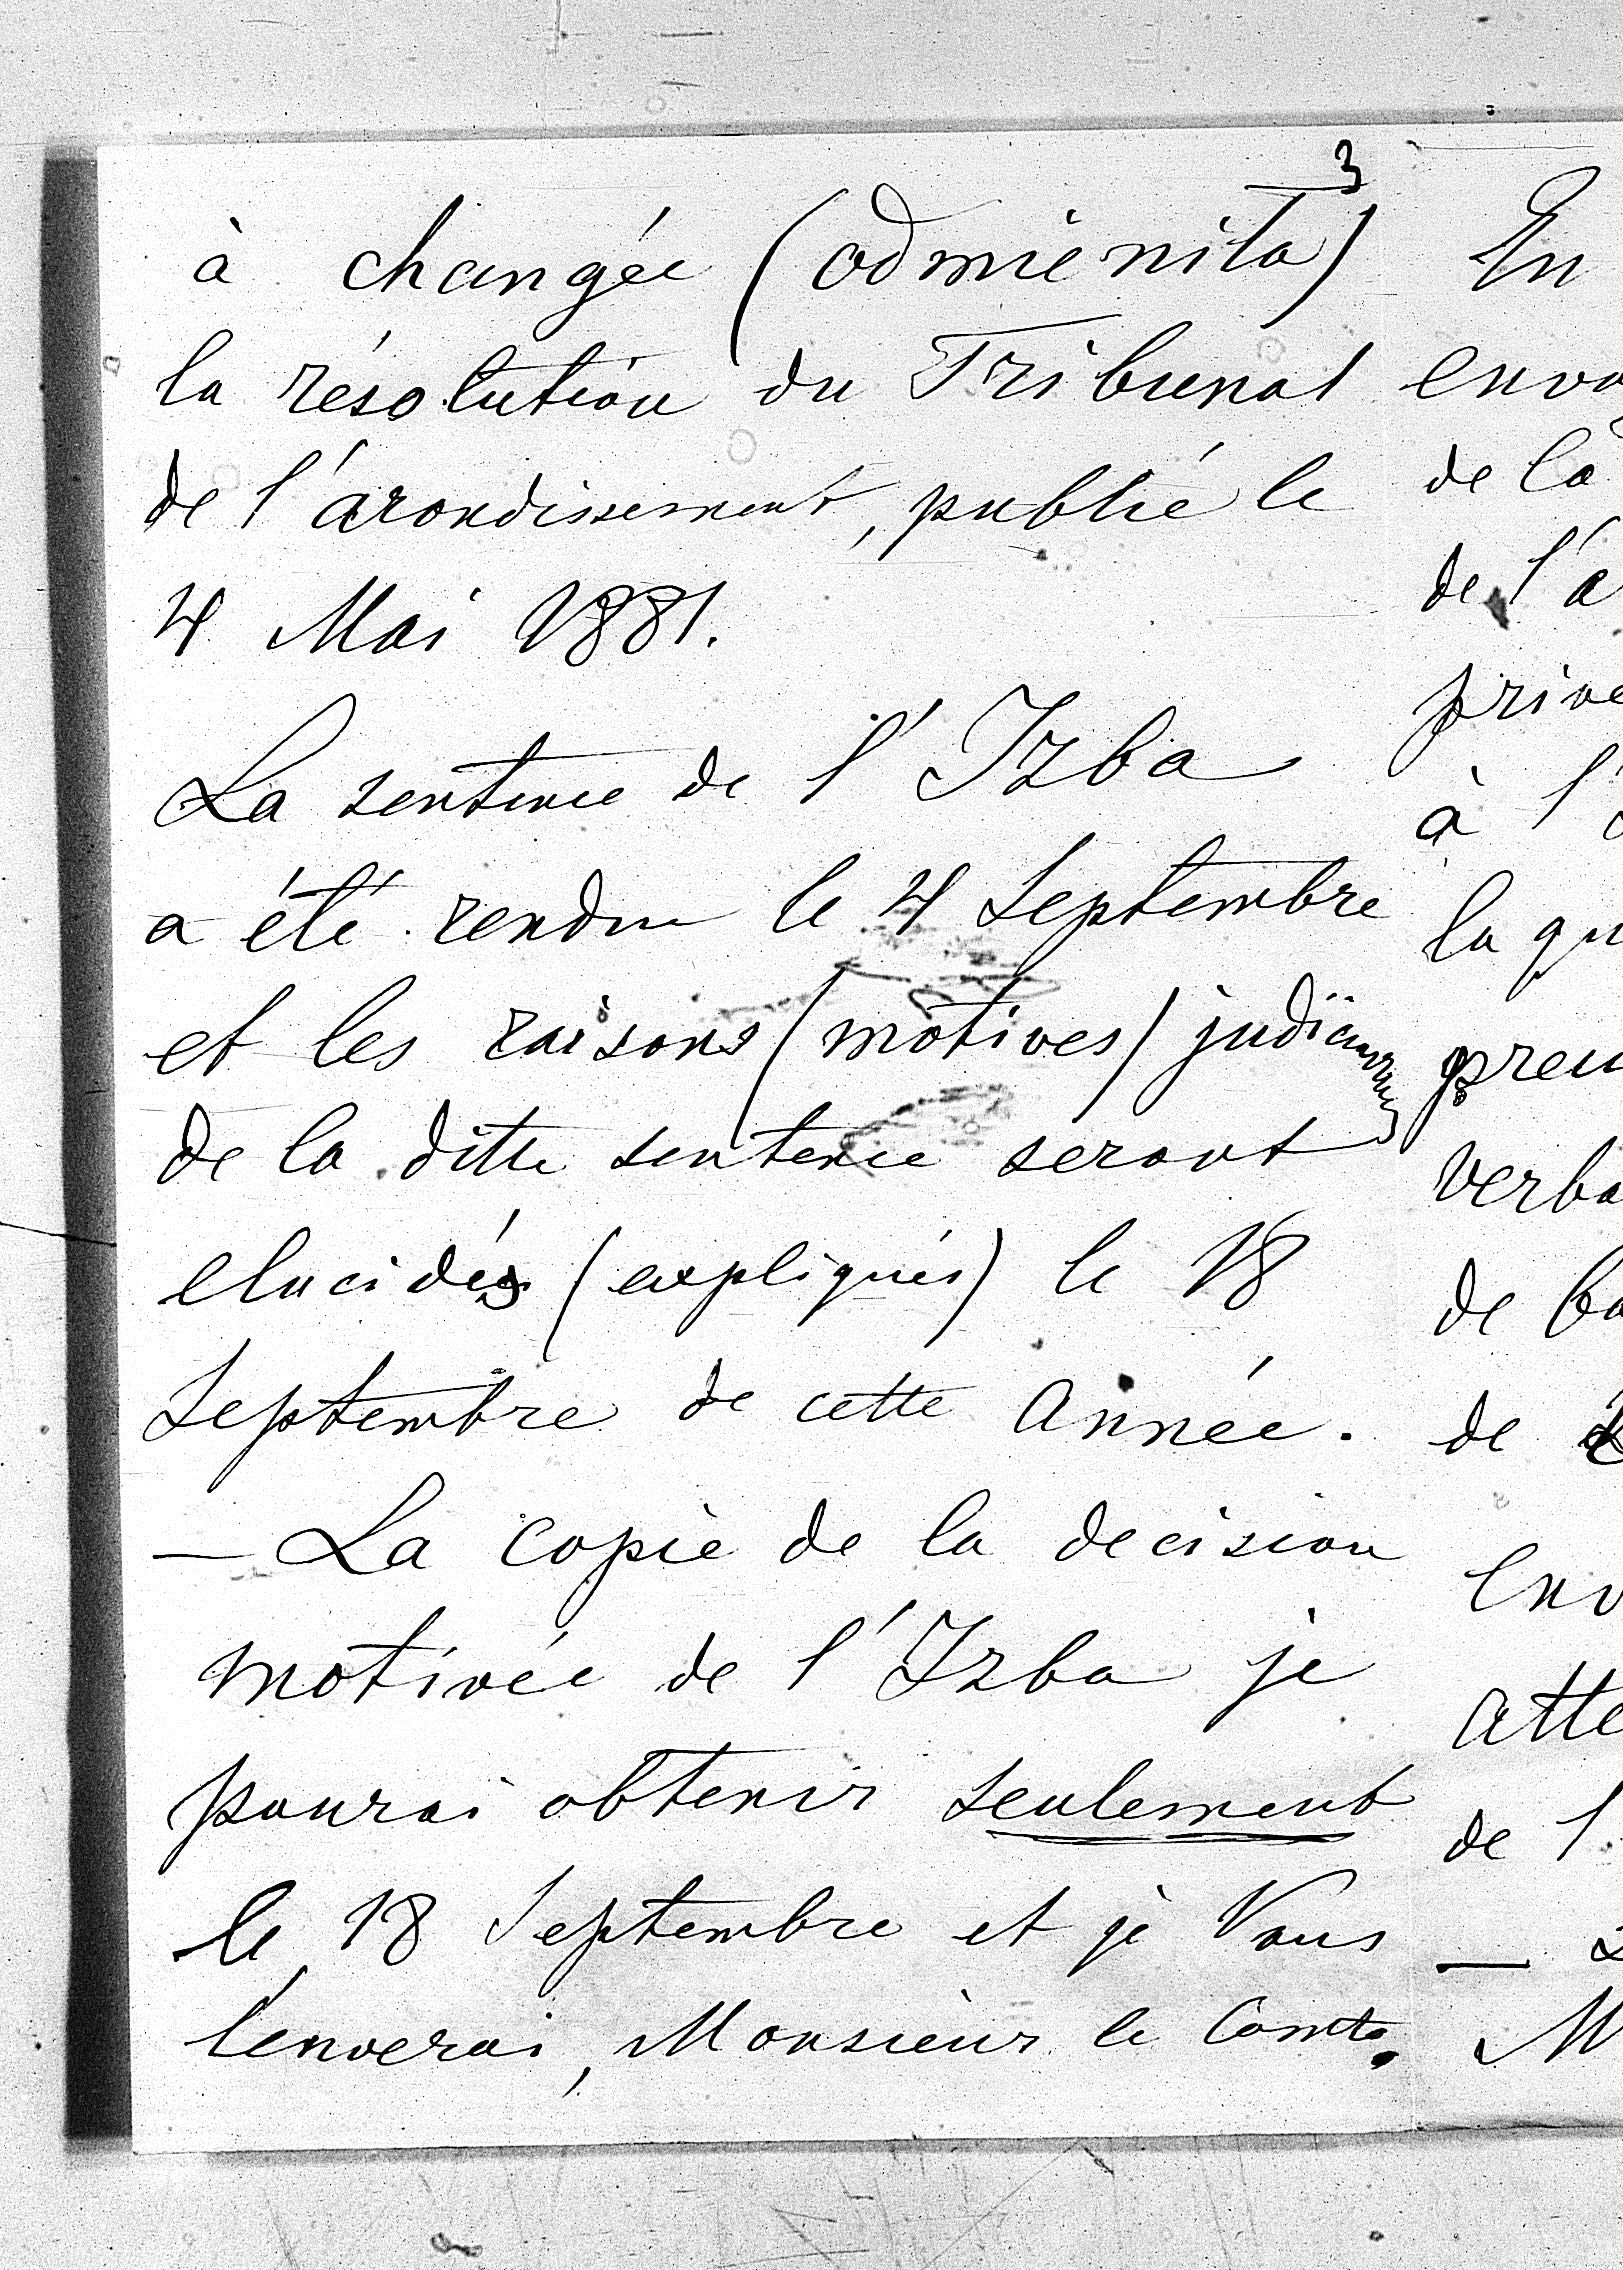 3
à changée (odmieniła)
la résolution du Tribunal
de l'arondissement, publié le
4 Mai 1881.
La sentence de l'Izba
a été rendu le 4 Septembre
et les raisons (motives) judiciaires
de la ditte sentence seront
elucidés (expliqués) le 18
Septembre de cette Année.
— La copie de la decision
motivée de l'Izba je
pourai obtenir seulement
le 18 Septembre et je Vous
l'enverai, Monsieur le Comte.
En
de la
de l'a
à l'
la qu
de
de
de l'
—
M